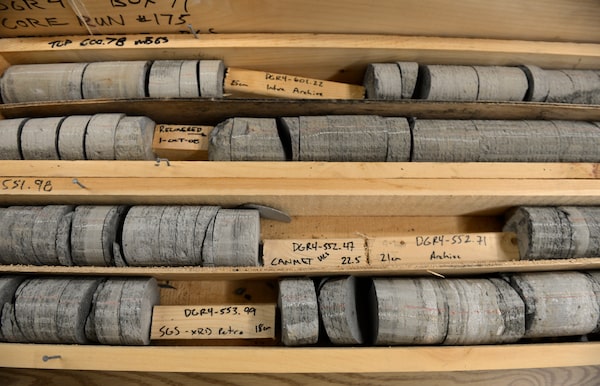 DGR4 BOX 71
CORE RUN #175
TOP 600.78 mBGS
DGR4-601.22
25cm Intra Archive
RECOVERED
1-OCT-08
551.98
DGR4-552.47
CANMET UCS 22.5
DGR4-552.71
21cm Archive
DGR4-553.99
SGS-XRD Petro 18cm